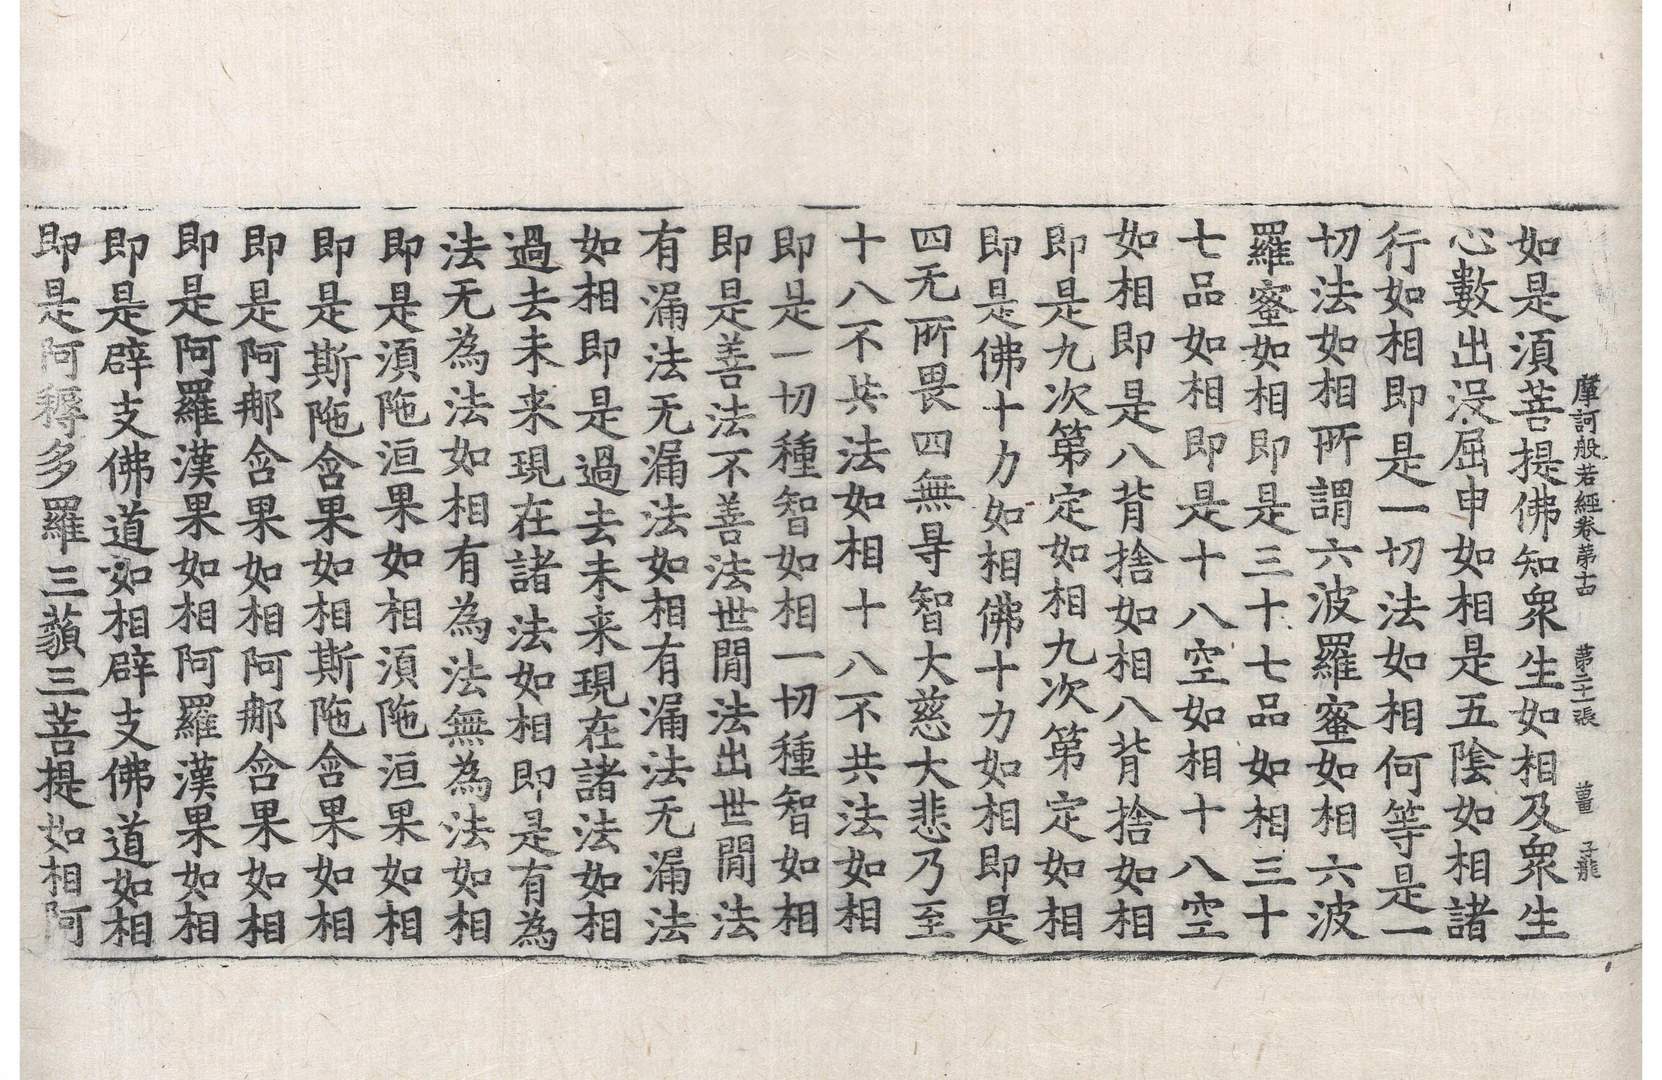 摩訶般若經卷苐十四 苐二十張 薑 子龍
如是湏菩提佛知衆生如相及衆生
心數出沒屈申如相是五陰如相諸
行如相即是一切法如相何等是一
切法如相所謂六波羅蜜如相六波
羅蜜如相即是三十七品如相三十
七品如相即是十八空如相十八空
如相即是八背捨如相八背捨如相
即是九次第定如相九次第定如相
即是佛十力如相佛十力如相即是
四无所畏四無㝵智大慈大悲乃至
十八不共法如相十八不共法如相
即是一切種智如相一切種智如相
即是善法不善法世閒法出世閒法
有漏法无漏法如相有漏法无漏法
如相即是過去未来現在諸法如相
過去未来現在諸法如相即是有為
法无為法如相有為法無為法如相
即是湏陁洹果如相湏陁洹果如相
即是斯陁含果如相斯陁含果如相
即是阿那含果如相阿那含果如相
即是阿羅漢果如相阿羅漢果如相
即是辟支佛道如相辟支佛道如相
即是阿耨多羅三藐三菩提如相阿